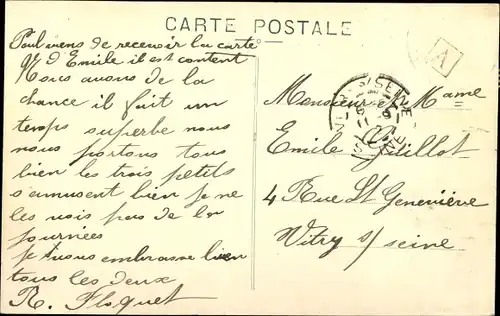 CARTE POSTALE
A
Paul viens de recevoir la carte
d'Emile il est content
Nous avons de la
chance il fait un
temps superbe nous
nous portons tous
bien les trois petits
s'amusent bien je ne
les vois pas de la
journées
je vous embrasse bien
tous les deux
R. Floquet
Monsieur et Mame
Emile Guillot
4 Rue St Geneviève
Vitry s/ seine